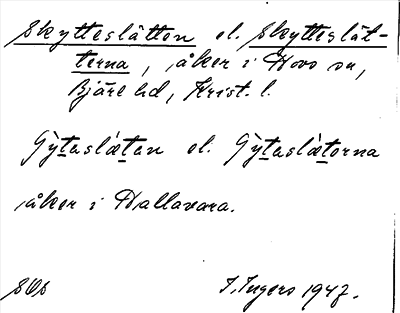 Skytteslätten el. Skytteslät-
terna, åker i Hovs sn,
Bjäre hd, Krist. l.
Gy̆taslätan el. Gy̆taslätorna
åker i Hallavara.
SOs I. Ingers 1947.